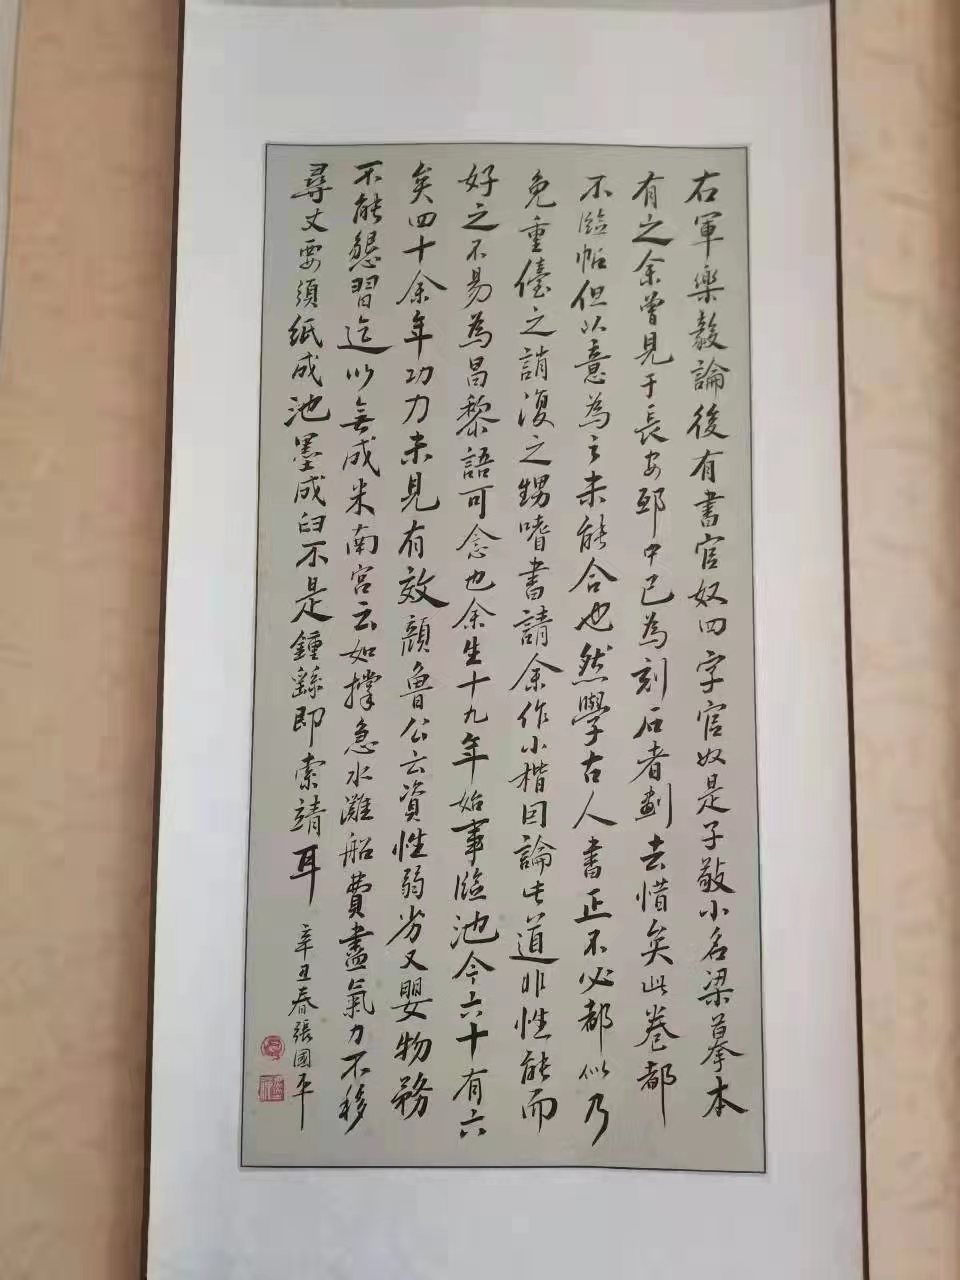 右軍樂毅論後有書官奴四字官奴是子敬小名梁摹本
有之余曾見于長安邸中已為刻石者劃去惜矣此卷都
不臨帖但以意為之未能合也然學古人書正不必都似乃
免重儓之誚復之甥嗜書請余作小楷因論此道非性能而
好之不易為昌黎語可念也余生十九年始事臨池今六十有六
矣四十余年功力未見有效顏魯公云資性弱劣又嬰物務
不能懇習迄以無成米南宮云如撐急水灘船費盡氣力不移
尋丈要須紙成池墨成臼不是鍾繇即索靖耳
辛丑春張國平